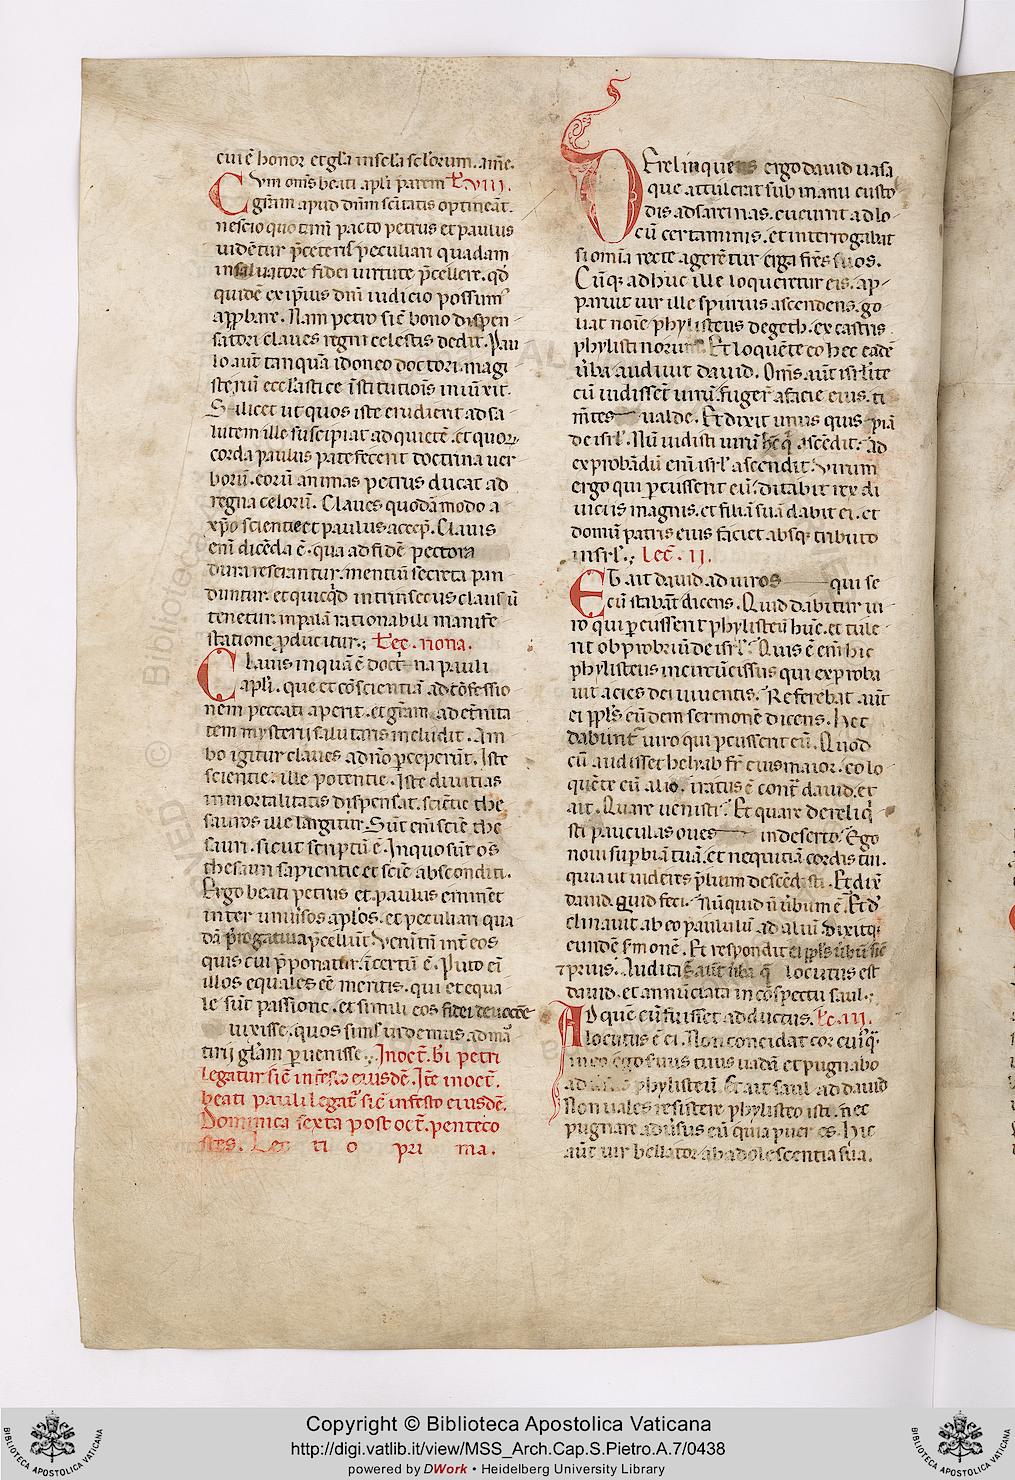 cui ē honor et gl̄a in sc̄la sc̄lorum. am̄e.
Cum om̄s beati apl̄i parem Lc̄. viii.
gr̄am apud dn̄m sc̄itatis optineāt.
nescio quo tamē pacto petrus et paulus
uidētur p̄ceteris peculiari quadam
in saluatore fidei uirtute p̄cellere. qđ
quidē ex ip̄ius dn̄i iudicio possum᷒
app̄bare. Nam petro sic̄ bono dispen-
satori claues regni celestis dedit. Pau
lo aūt tanquā idoneo doctori. magi
steriū eccl̄astice īstitutiōis iniūxit.
Scilicet ut quos iste erudierit ad sa-
lutem ille suscipiat ad quietē. et quorꝝ
corda paulus patefecerit doctrina uer
borū. eorū animas petrus ducat ad
regna celorū. Claues quodāmodo a
xp̄o scientie et paulus accep̄. Clauis
enī dicēda ē. qua ad fidē pectora
dura reserantur. mentiū secreta pan
duntur. et quicq̄d intrinsecus clausū
tenetur. in palā rationabili manife
statione producitur. ; Lec̄. nona.
Clauis inquā ē doct̄na pauli
apl̄i. que et cōscientiā ad cōfessio
nem peccati aperit. et gr̄am ad et̄nita
tem mysterii salutaris includit. Am
bo igitur claues a dn̄o p̄ceperūt. Iste
scientie. ille potentie. Iste diuitias
immortalitatis dispensat. sciētie the
sauros ille largitur. Sūt em̄ sciē the
sauri. sicut scriptū ē. In quo sūt oēs
thesauri sapientie et sciē absconditi.
Ergo beati petrus et paulus eminēt
inter uniūsos apl̄os. et peculiari qua
dā p̄rogatiua p̄cellūt. Verū tn̄ int̄ eos
quis cui p̄ponatur. īcertū ē. Puto en̄
illos equales eē meritis. qui et equa
le sūt passione. et simili eos fidei deuotōe
uixisse. quos simł uidemus ad mar᷒
tirii gl̄am puenisse. ; In oct̄. bī petri
legatur sic̄ in festo eiusdē. It̄e in oct̄.
beati pauli legat᷒ sic̄ in festo eiusdē.
Dominica sexta post oct̄. penteco
stes. Lec ti o pri ma.
Derelinquens ergo dauid uasa
que attulerat sub manu custo
dis ad sarcinas. cucurrit ad lo-
cū certaminis. et interrogabat
si omīa recte agerētur erga fr̄es suos.
Cūq̄ adhuc ille loqueretur eis. ap-
paruit uir ille spurius ascendens. go
liat noīe phylisteus de geth. ex castris
phylistinorum. Et loquēte eo hec eadē
ūba audiuit dauid. Om̄s aūt isrl̄ite
cū uidissēt uirū. fuger̄ a facie eius. ti
m̄tes ualde. Et dixit unus quispiā
de isrl̄. Nū uidisti uirū hc̄ q̄ ascēdit. ad
exprobādū enī isrl̄ ascendit. Virum
ergo qui pcusserit eū. ditabit rex di
uiciis magnis. et filiā suā dabit ei. et
domū patris eius faciet absq̄ tributo
in isrl̄. ; Lec̄. II.
Et ait dauid ad uiros qui se
cū stabāt dicens. Quid dabitur ui
ro qui pcusserit phylisteū hūc. et tule
rit obprobriū de isrl̄. Quis ē em̄ hic
phylisteus incircūcissus qui exproba
uit acies dei uiuentis. Referebat aūt
ei ppl̄s eūdem sermonē dicens. Hec
dabunt᷒ uiro qui pcusserit eū. Quod
cū audisset heliab fr̄ eius maior. eo lo
quēte cū aliis. iratus ē cont̄ dauid. et
ait. Quare uenisti. Et quare dereliq̄
sti pauculas oues in deserto. Ego
noui supbiā tuā. et nequitiā cordis tui.
quia ut uideres p̄lium descēdisti. Et dix̄
dauid. Quid feci. Nūquid ū ūbum ē. Et đ
clinauit ab eo paululū ad aliū. Dixitq̄
eundē sm̄onē. Et respondit ei ppl̄s ūbū sic̄
⁊ prius. Audita s̄ aūt ūba q̄ locutus est
dauid. et annūciata in cōspectu saul. ;
Ad que cū fuisset adductus. Lc̄. III.
locutus ē ei. Non concidat cor cuiusq̄
in eo. ego seruus tuus uadā et pugnabo
ad uersū phylisteū. Et ait saul ad dauid
Non uales resistere phylisteo isti. n̄ec
pugnare aduūsus eū. quia puer es. hic
aūt uir bellator ab adolescentia sua.
Copyright © Biblioteca Apostolica Vaticana
http://digi.vatlib.it/view/MSS_Arch.Cap.S.Pietro.A.7/0438
powered by DWork • Heidelberg University Library
BIBLIOTECA APOSTOLICA VATICANA
BIBLIOTECA APOSTOLICA VATICANA